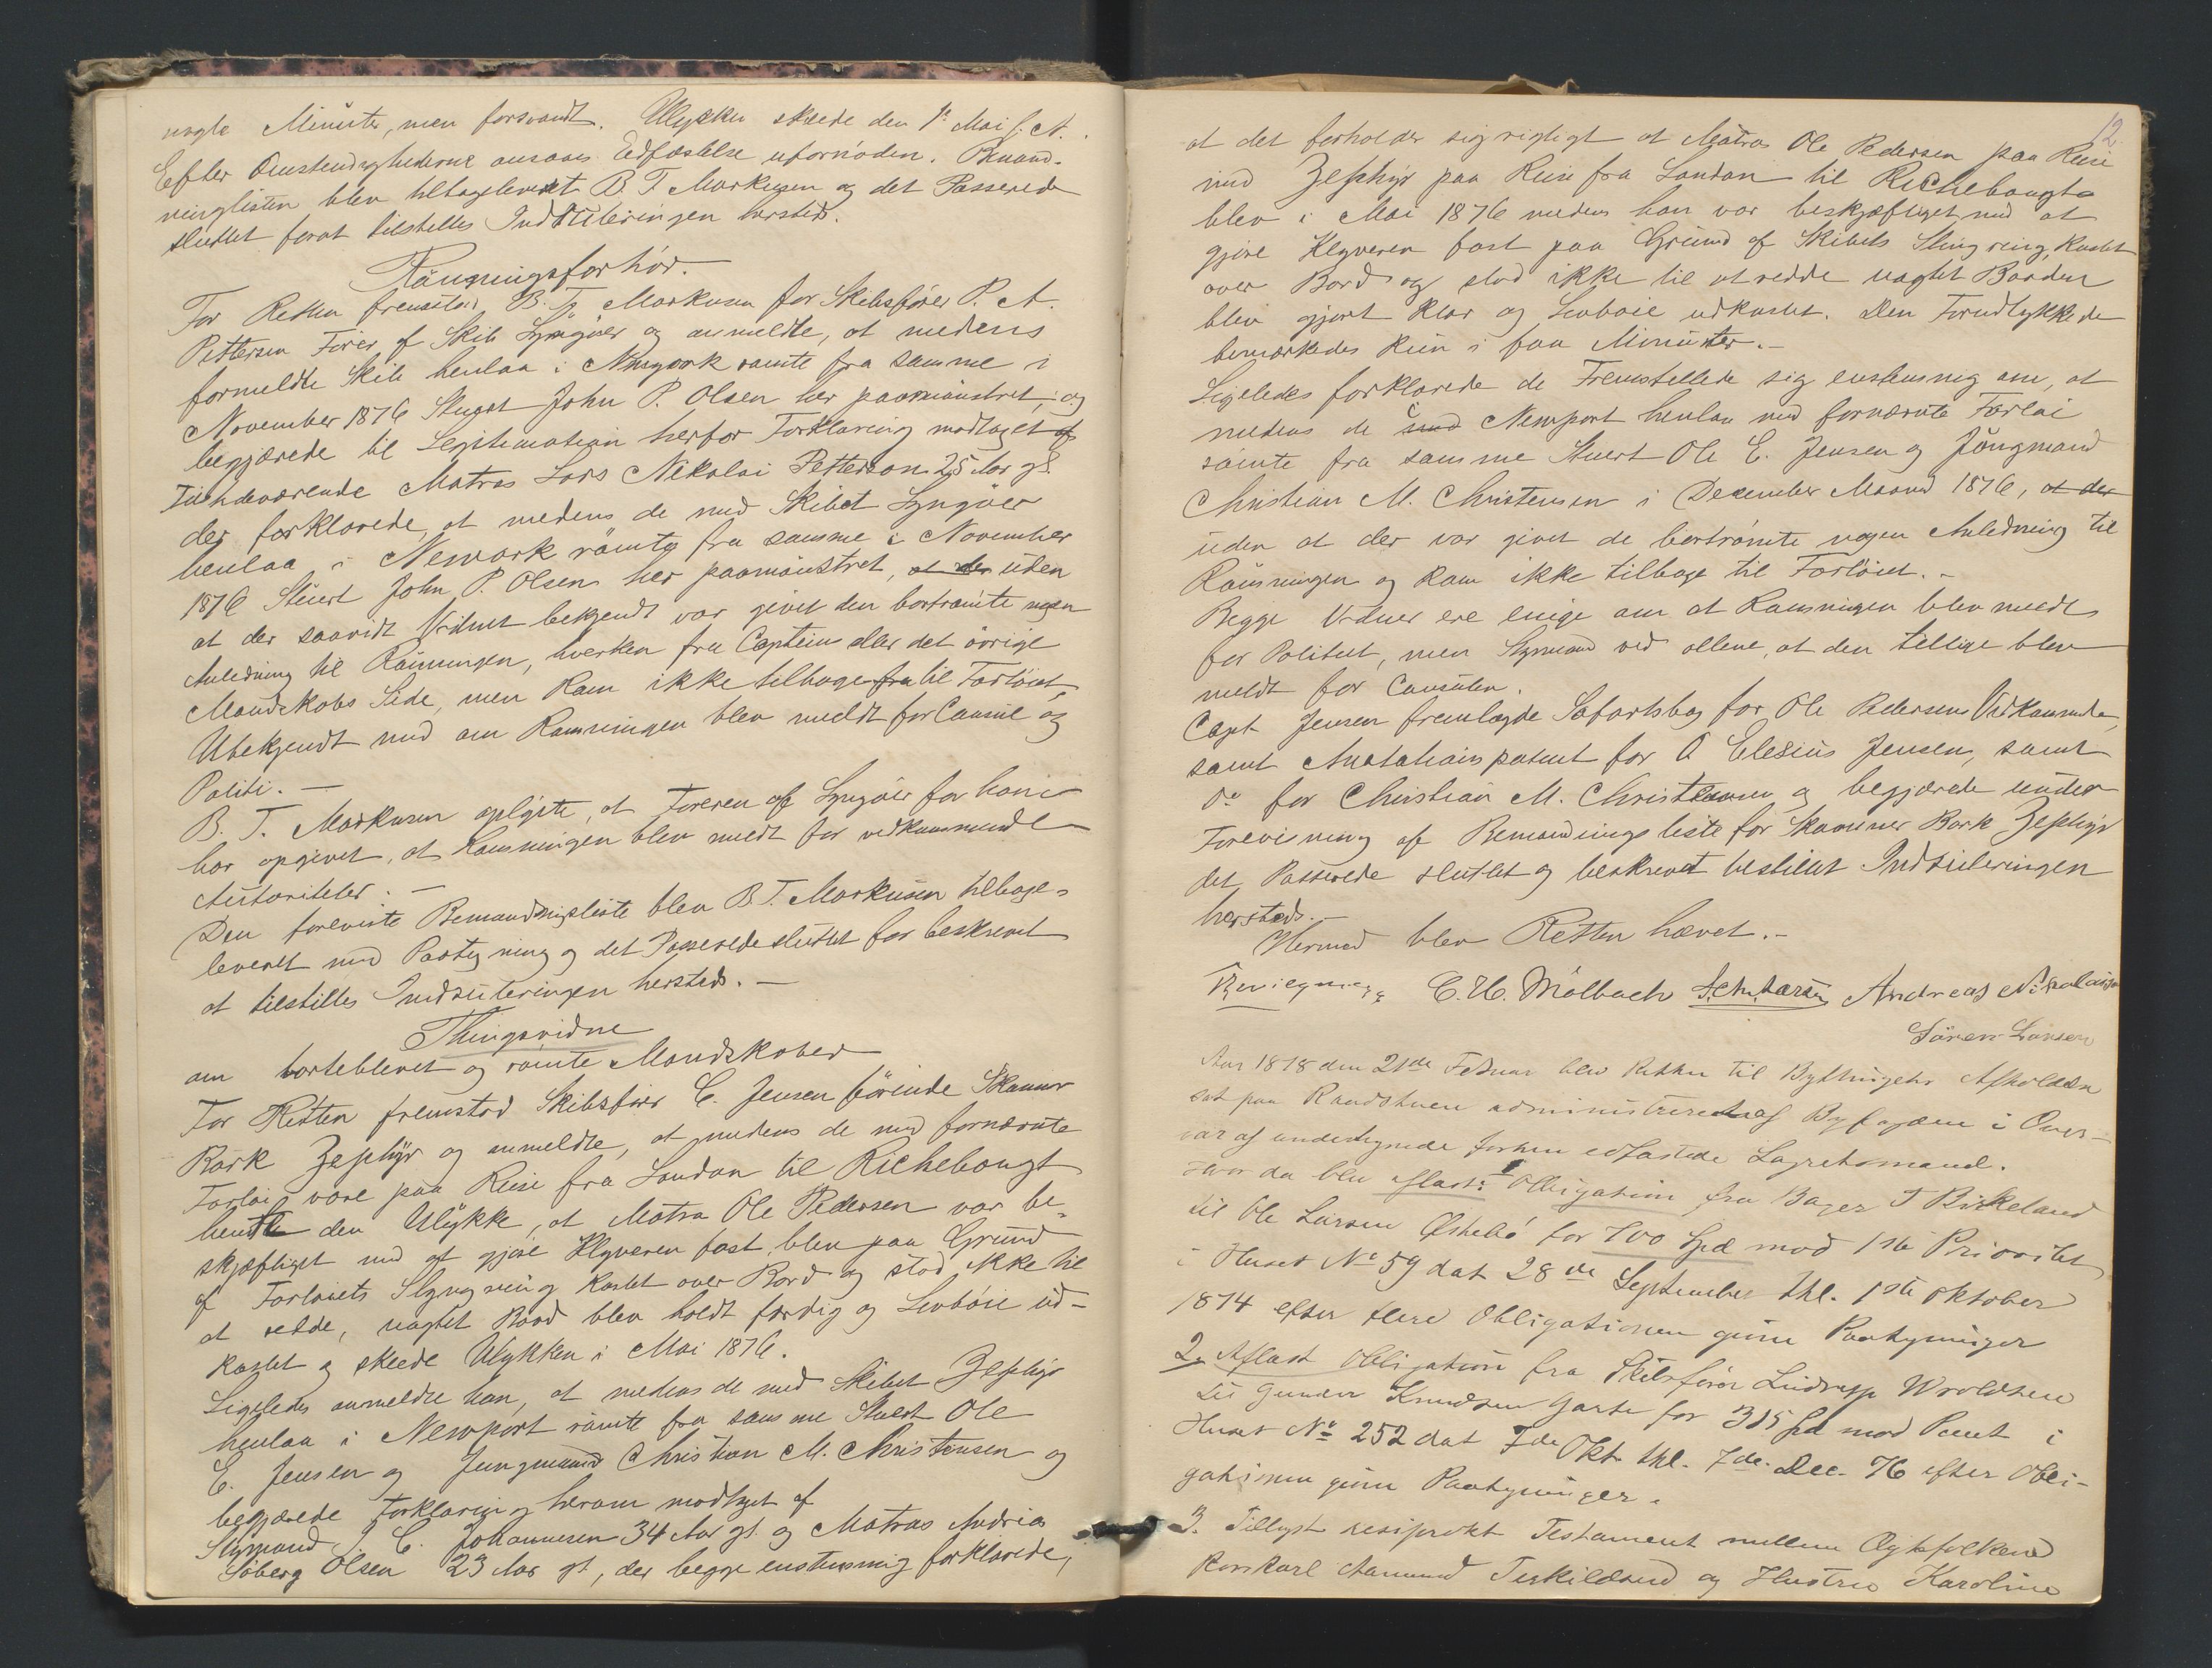 nogle Minuter, men forsvandt. Ulykken skeede den 1ste Mai f. A.
Efter Omstendighederne ansaaes Edfæstelse ufornøden. Bemand-
ningslisten blev tilbageleveret B. T. Markusen og det Passerede
sluttet forat tilstilles Indrulleringen hersteds.
Römningsforhör.
For Retten fremstod B. T. Markusen for Skibsfører P. A.
Pettersen Förer af Skib Lyngöer og anmeldte, at medens
formeldte Skib henlaa i Newyork römte fra samme i
November 1876 Stuert John P. Olsen her paamönstret, og
begjærede til Legitimation herfor Forklaring modtaget af
Tilstedeværende Matros Lars Nikolai Petterson 25 Aar gl.
der forklarede, at medens de med Skibet Lyngöer
henlaa i Newyork römte fra samme i November
1876 Stuert John P. Olsen her paamönstret, at der uden
at der saavidt Vidnet bekjendt var givet den bortrömte nogen
Anledning til Römningen, hverken fra Captein eller det övrige
Mandskabs Side, men kom ikke tilbage fra til Fartöiet,
Ubekjendt med om Römningen blev meldt for Consul og
Politi. —
B. T. Markusen oplyste, at Föreren af Lyngöer for ham
har opgivet, at Römningen blev meldt for vedkommende
Autoriteter. —
Den foreviste Bemandingsliste blev B. T. Markusen tilbage-
leveret med Paategning og det Passerede sluttet for beskrevet
at tilstilles Indrulleringen hersteds. —
Thingsvidne
om bortblevet og römte Mandskaber
For Retten fremstod Skibsförer C. Jensen förende Skonner
Bark Zephyr og anmeldte, at medens de med fornævnte
Fartöi vare paa Reise fra London til Richebougt
hendte den Ulykke, at Matros Ole Pedersen var be-
skjæftiget med at gjöre Klyveren fast, blev paa Grund
af Fartöiets Slyngring kastet over Bord og stod ikke til
at redde, uagtet Baad blev holdt færdig og Livböie ud-
kastet og skeede Ulykken i Mai 1876.
Ligeledes anmeldte han, at medens de med Skibet Zephyr
henlaa i Newport römte fra samme Stuert Ole
E. Jensen og Jungmand Christian M. Christensen og
begjærede Forklaring herom modtaget af
Styrmand J. C. Johannesen 34 Aar gl. og Matros Andrias
Söberg Olsen 23 Aar gl., der begge enstemmig forklarede,
12
at det forholder sig rigtigt at Matros Ole Pedersen paa Reise
med Zephyr paa Reise fra London til Richebougt
blev i Mai 1876 medens han var beskjæftiget med at
gjöre Klyveren fast paa Grund af Skibets Slingring, kastet
over Bord og stod ikke til at redde uagtet Baaden
blev gjort klar og Livböie udkastet. Den Forulykkede
bemærkedes kun i faa Minutter. —
Ligeledes forklarede de Fremstillede sig enstemmig om, at
medens de med i Newport henlaa med fornævnte Fartöi
römte fra samme Stuert Ole E. Jensen og Jüngmand
Christian M. Christensen i December Maaned 1876, at der
uden at der var givet de bortrömte nogen Anledning til
Römningen og kom ikke tilbage til Fartöiet. —
Begge Vidner ere enige om at Römningen blev meldt
for Politiet, men Styrmand ved allene, at den tillige blev
meldt for Consulen.
Capt. Jensen fremlagde Söfartsbog for Ole Pedersens Vedkommende,
samt Anotationspatent for O Elesius Jensen, samt
do for Christian M. Christensen og begjærede under
Forevisning af Bemandingsliste for Skonner Bark Zephyr
det Passerede sluttet og beskrevet tilstillet Indrulleringen
hersteds. —
Hermed blev Retten hævet. —
C. H. Mölbach Andreas Nikolaisen
Sören Larsen
Aar 1878 den 21de Februar blev Retten til Bythingets Afholdelse
sat paa Raadstuen administreret af Byfogden i Over-
vær af undertegnede forhen edfæstede Lagretsmænd.
Hvor da blev aflæst: 1. Obligation fra Bager T Birkeland
til Ole Larsen Østebö for 700 Spd mod 1ste Prioritet
i Huset No 59 dat 28de September thl. 1ste oktober
1874 efter flere Obligationen givne Paategninger
2. Aflæst Obligation fra Skibsförer Lydersen Wroldsen
til Gunder Knudsen Garta for 315 Spd mod Pant i
Huset No 252 dat 7de Okt. thl. 7de Dec. 76 efter Obli-
gationen givne Paategninger.
3. Tillyst resiprokt Testament mellem Ægtefolkene
Aamund Terkildsen og Hustru Karoline